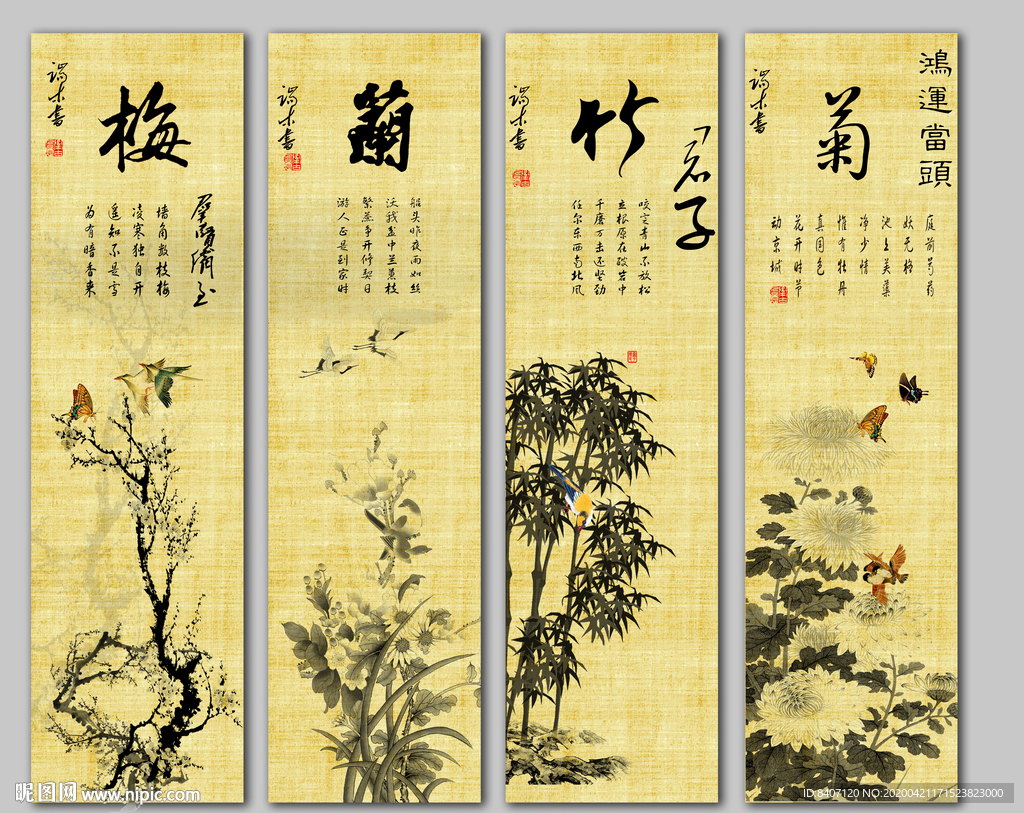 瑞木書
梅
墙角数枝梅
凌寒独自开
遥知不是雪
为有暗香来
瑞木書
蘭
船头昨夜雨如丝
沃我盆中兰蕙枝
繁蕊争开修禊日
游人正是到家时
瑞木書
竹
君子
咬定青山不放松
立根原在破岩中
千磨万击还坚劲
任尔东西南北风
鸿運當頭
瑞木書
菊
庭前芍药
妖无格
池上芙蕖
净少情
惟有牡丹
真国色
花开时节
动京城
昵图网 www.nipic.com
ID:8407120 NO:20200421171523823000